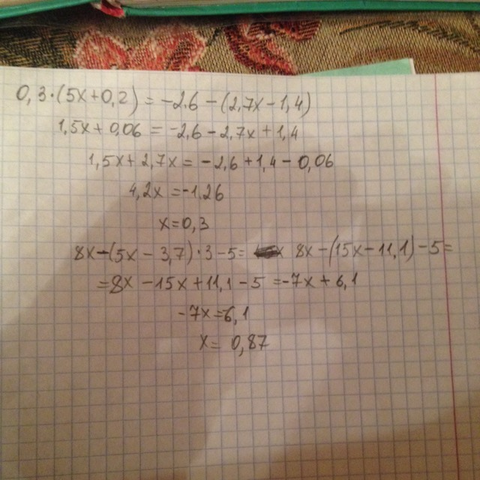 0,3·(5x+0,2) = -2,6 - (2,7x-1,4)
1,5x+0,06 = -2,6-2,7x+1,4
1,5x+2,7x = -2,6+1,4-0,06
4,2x = -1,26
x=0,3
8x-(5x-3,7)·3-5= 8x-(15x-11,1)-5=
=8x-15x+11,1-5=-7x+6,1
-7x=6,1
x= 0,87